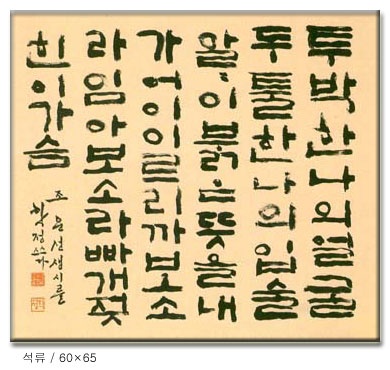 투박한나의얼굴
두툴한나의입술
알〃이붉은뜻을내
가어이이르리까보소
라임아보소라빠개젖
힌이가슴
조운선생시를
학정
석류 / 60×65